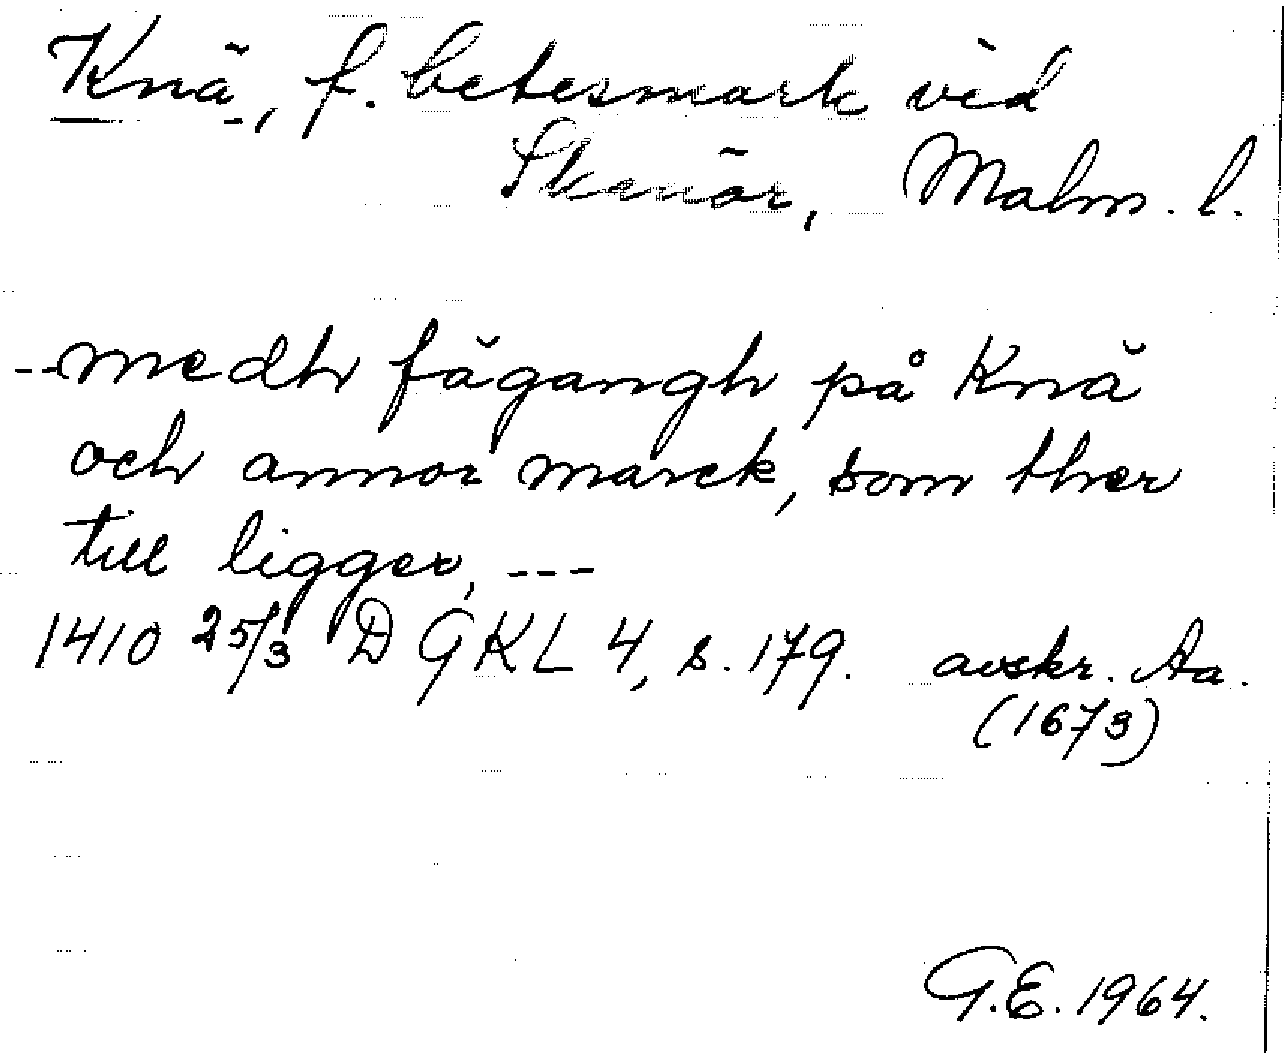 Knä, f. betesmark vid
Skanör, Malm. l.
--medh fägangh på Knä
och annor marck, som ther
till ligger, ---
1410 25/3 D GKL 4, s. 179. avskr. Aa.
(1673)
G.E. 1964.